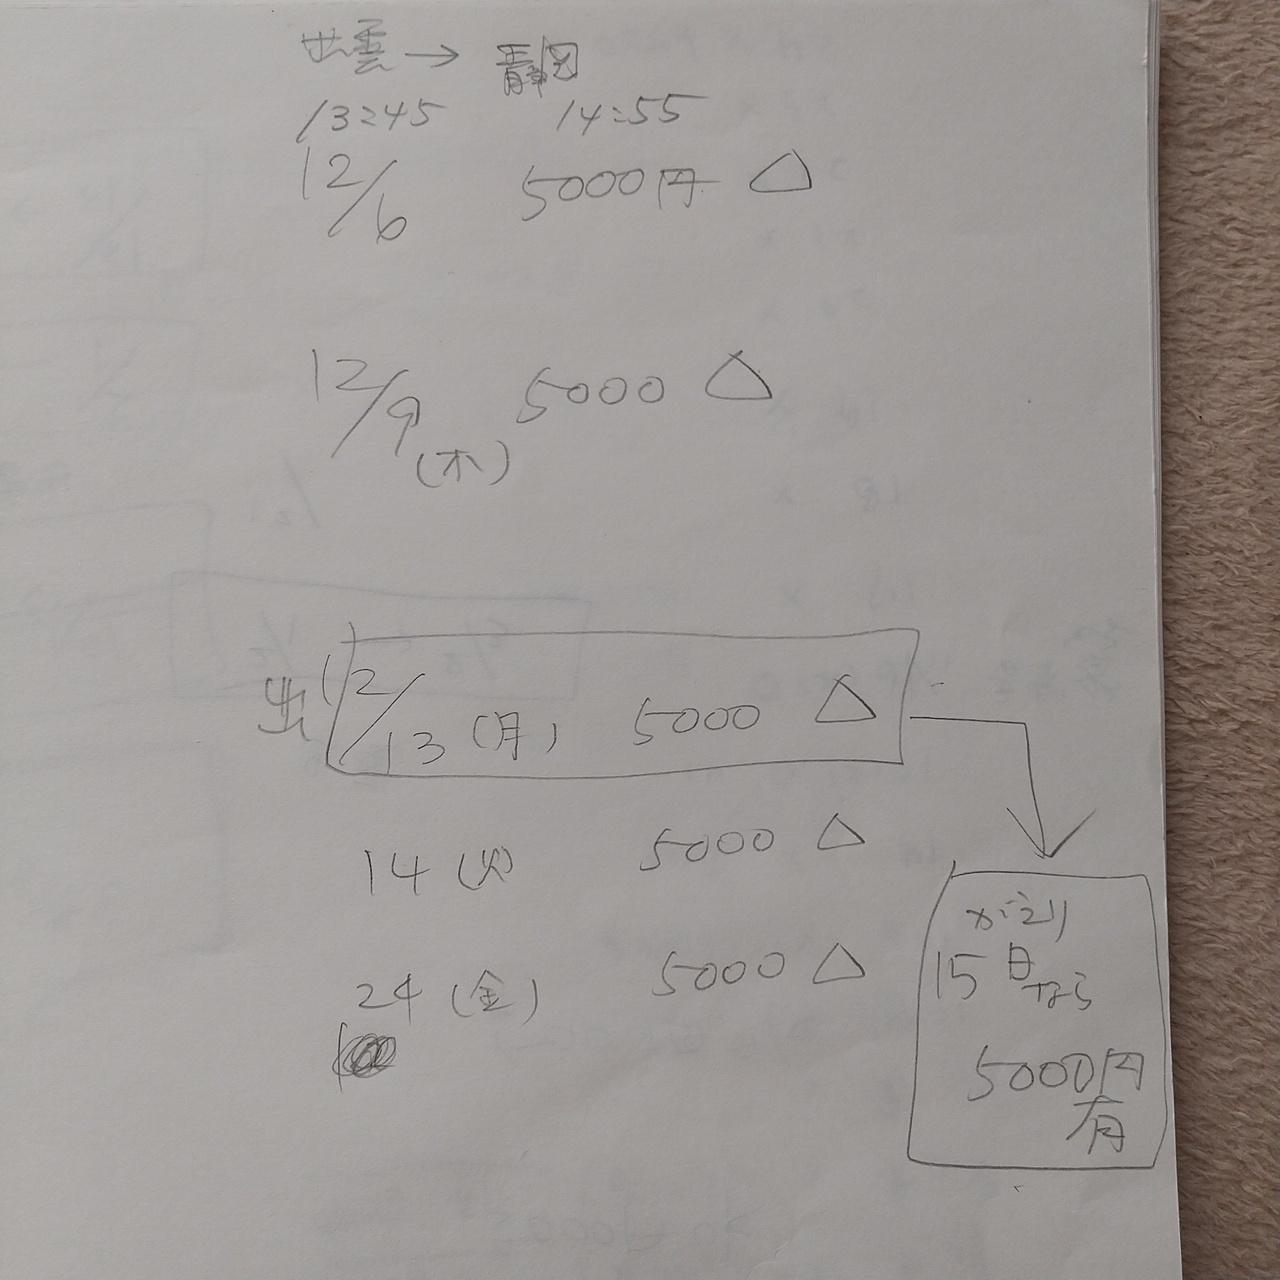 出雲→静岡
13:45 14:55
12/6 5000円 △
12/9 (木) 5000 △
出 12/13 (月) 5000 △
14 (火) 5000 △
24 (金) 5000 △
かえり
15日なら
5000円
有